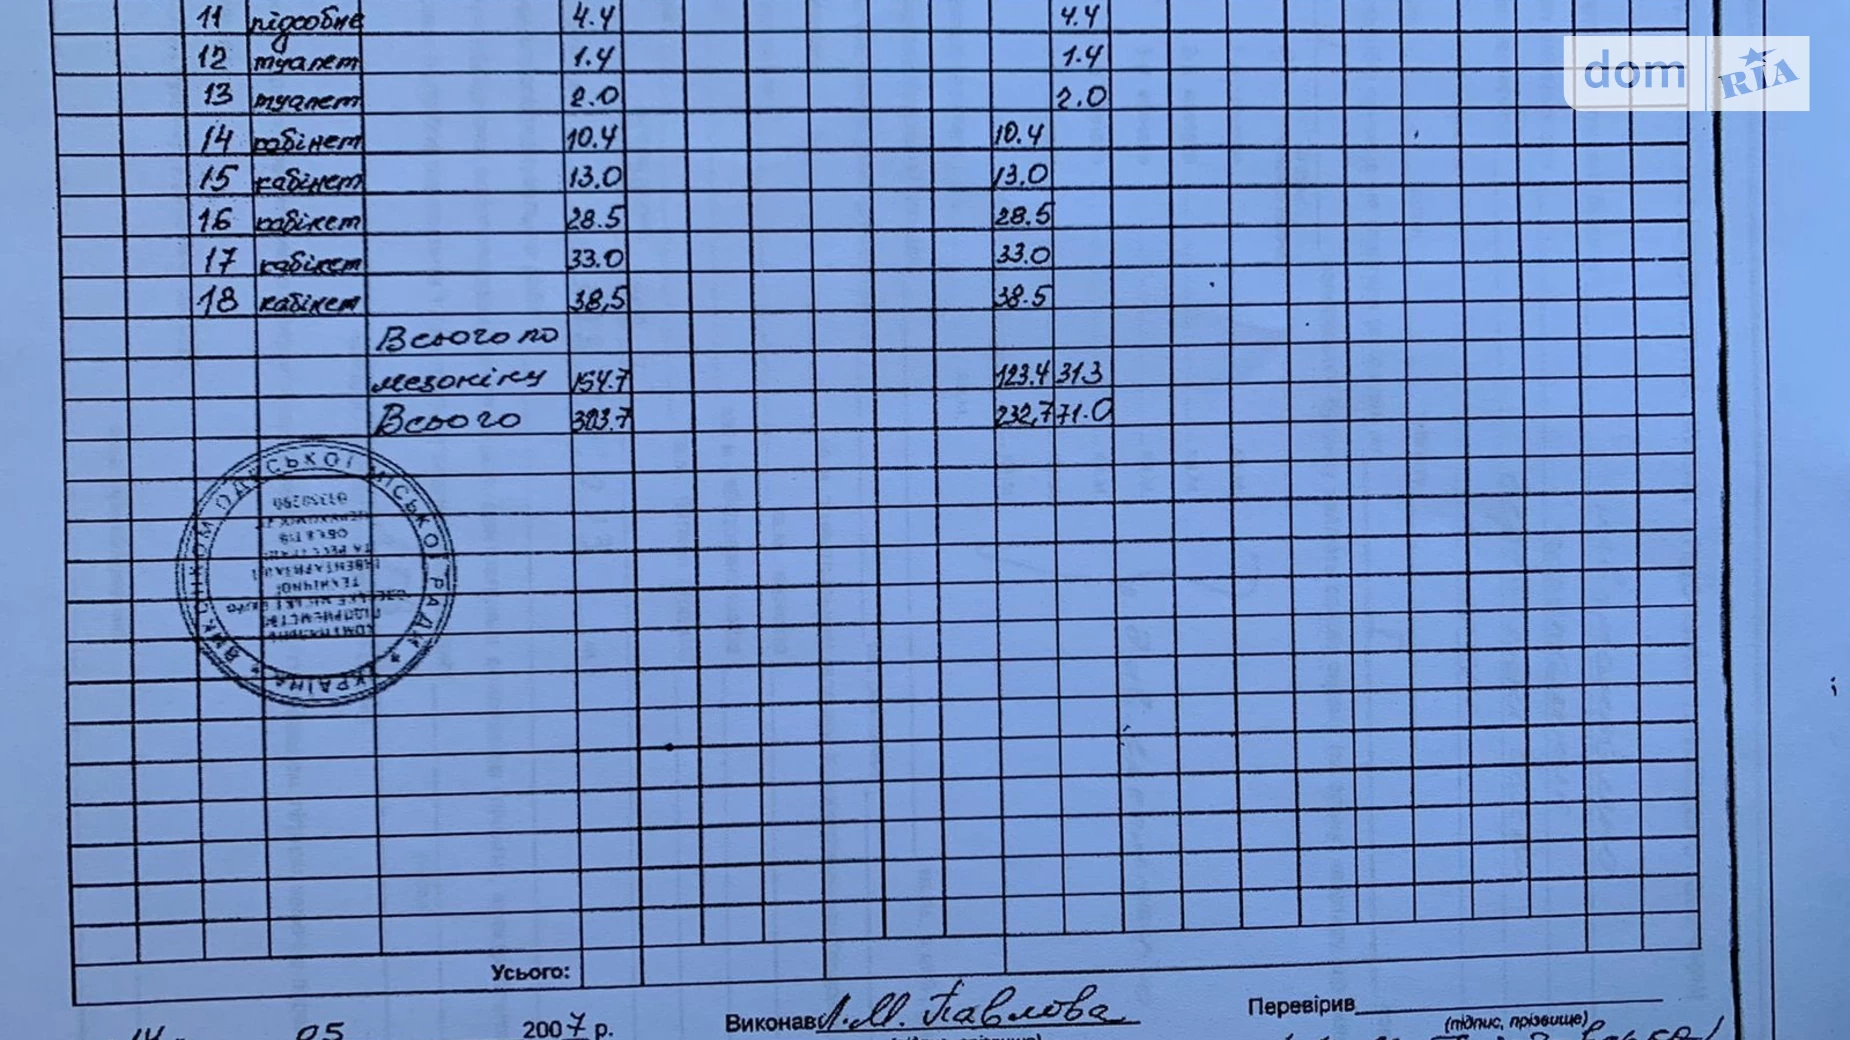 11 підсобне 4.4 4.4
dom RIA
12 туалет 1.4 1.4
13 туалет 2.0 2.0
14 кабінет 10.4 10.4
15 кабінет 13.0 13.0
16 кабінет 28.5 28.5
17 кабінет 33.0 33.0
18 кабінет 38,5 38.5
Всього по
мезоніну 154.7 123.4 31.3
Всього 303.7 232,7 71.0
ВИКОНКОМ ОДЕСЬКОЇ МІСЬКОЇ РАДИ * УКРАЇНА *
Усього:
14 05 2007 р.
Виконав Л.М. Павлова
Перевірив
(підпис, прізвище)